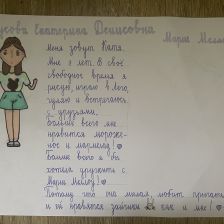 усова Екатерина Денисовна
Мария Мелл
Меня зовут Катя.
Мне 8 лет. В своё
свободное время я
рисую, играю в лего,
гуляю и встречаюсь
с друзьями.
Больше всего мне
нравится мороже-
ное и мармелад!
Больше всего я бы
хотела дружить с
Мария Мелло!
Потому что она милая, любит
и ей нравятся зайчики как и мне!